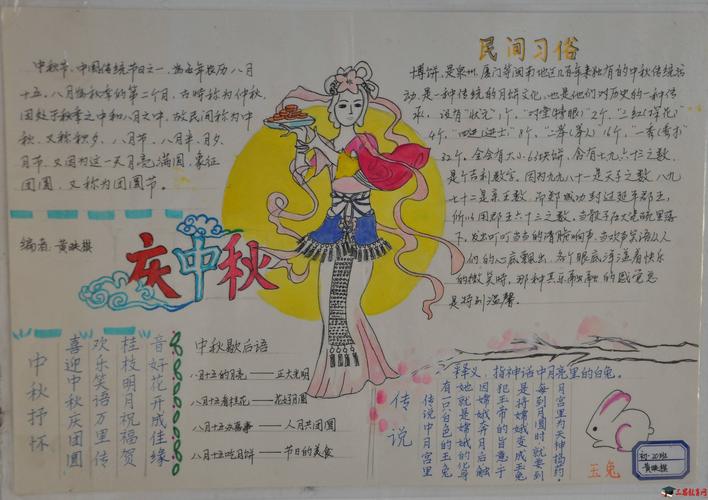 中秋节、中国传统节日之一、为每年农历八月
十五、八月为秋季的第二个月、古时称为仲秋、
因处于秋季之中和八月之中、故民间称为中
秋、又称秋夕、八月节、八月半、月夕、
月节、又因为这一天月亮满圆、象征
团圆、又称为团圆节。
编者：黄映棋
庆中秋
民间习俗
博饼、是泉州、厦门等闽南地区几百年来独有的中秋传统活
动、是一种传统的月饼文化、也是他们对历史的一种传
承、设有"状元"1个、"对堂(榜眼)"2个、"三红(探花)"
4个、"四进(进士)"8个、"二举(举人)"16个、"一秀(秀才)"
32个、全会有大小63块饼、含有七九六十三之数、
是个吉利数字、因为九九八十一是天子之数、八九
七十二是亲王数、而郑成功封过延平郡王、
所以用郡王六十三之数、当骰子在大瓷碗里落
下、发出叮叮当当的清脆响声、当欢声笑语从人
们的心底飘出、各个眼底洋溢着快乐
的微笑时、那种其乐融融的感觉总
是特别温馨。
中秋抒怀
喜迎中秋庆团圆
欢乐笑语万里传
桂枝明月祝福贺
音好花开成佳缘
中秋歇后语
八月十五的月亮——正大光明
八月十五看桂花——花好月圆
八月十五办喜事——人月共团圆
八月十五吃月饼——节日的美食
传说
释义：指神话中月亮里的白兔。
月宫里为天神捣药。
每到月圆时就要到
是将嫦娥变成玉兔
犯玉帝的旨意于
因嫦娥奔月后触
她就是嫦娥的化身
有一只白色的玉兔
传说中月宫里
玉兔
初一20班
黄映棋
三昌教育网